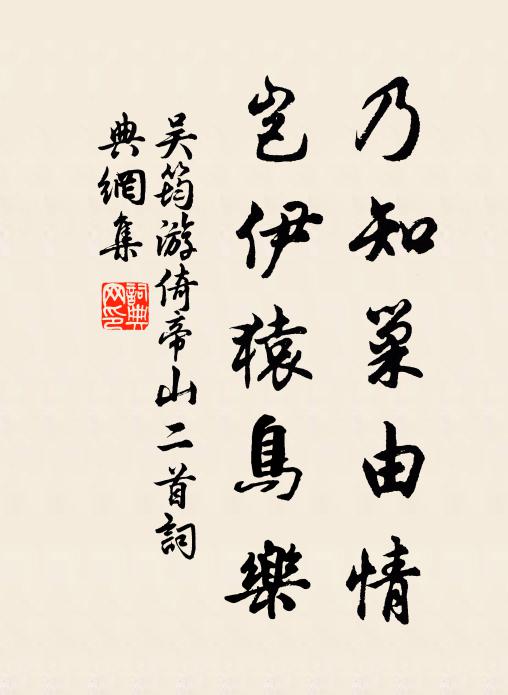 乃知巢由情
岂伊猿鳥樂
吴筠游倚帝山二首詞
典網集
詞典
网印